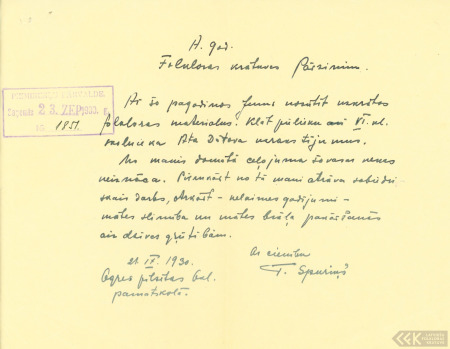 A. god.
Folkloras krātuves Pārzinim.
PIEMINEKĻU PĀRVALDE
Saņemts 23. SEP 1930. g.
№ 1851
Ar šo pagodinos Jums nosūtīt vāktos
folkloras materialus. Klāt pielieku arī VI. kl.
skolnieka Ata Dātava uzrakstījumus.
No manis domātā ceļojuma šovasar nekas
neiznāca. Pirmkārt no tā mani atrāva sabiedri
skais darbs, otrkārt - nelaimes gadījumi -
mātes slimība un mātes brāļa pakāršanās
aiz dzīves grūtībām.
21. IX. 1930.
Ar cieņu
T. Spuriņš
Ogres pilsētas
pamatskolā.
LFK